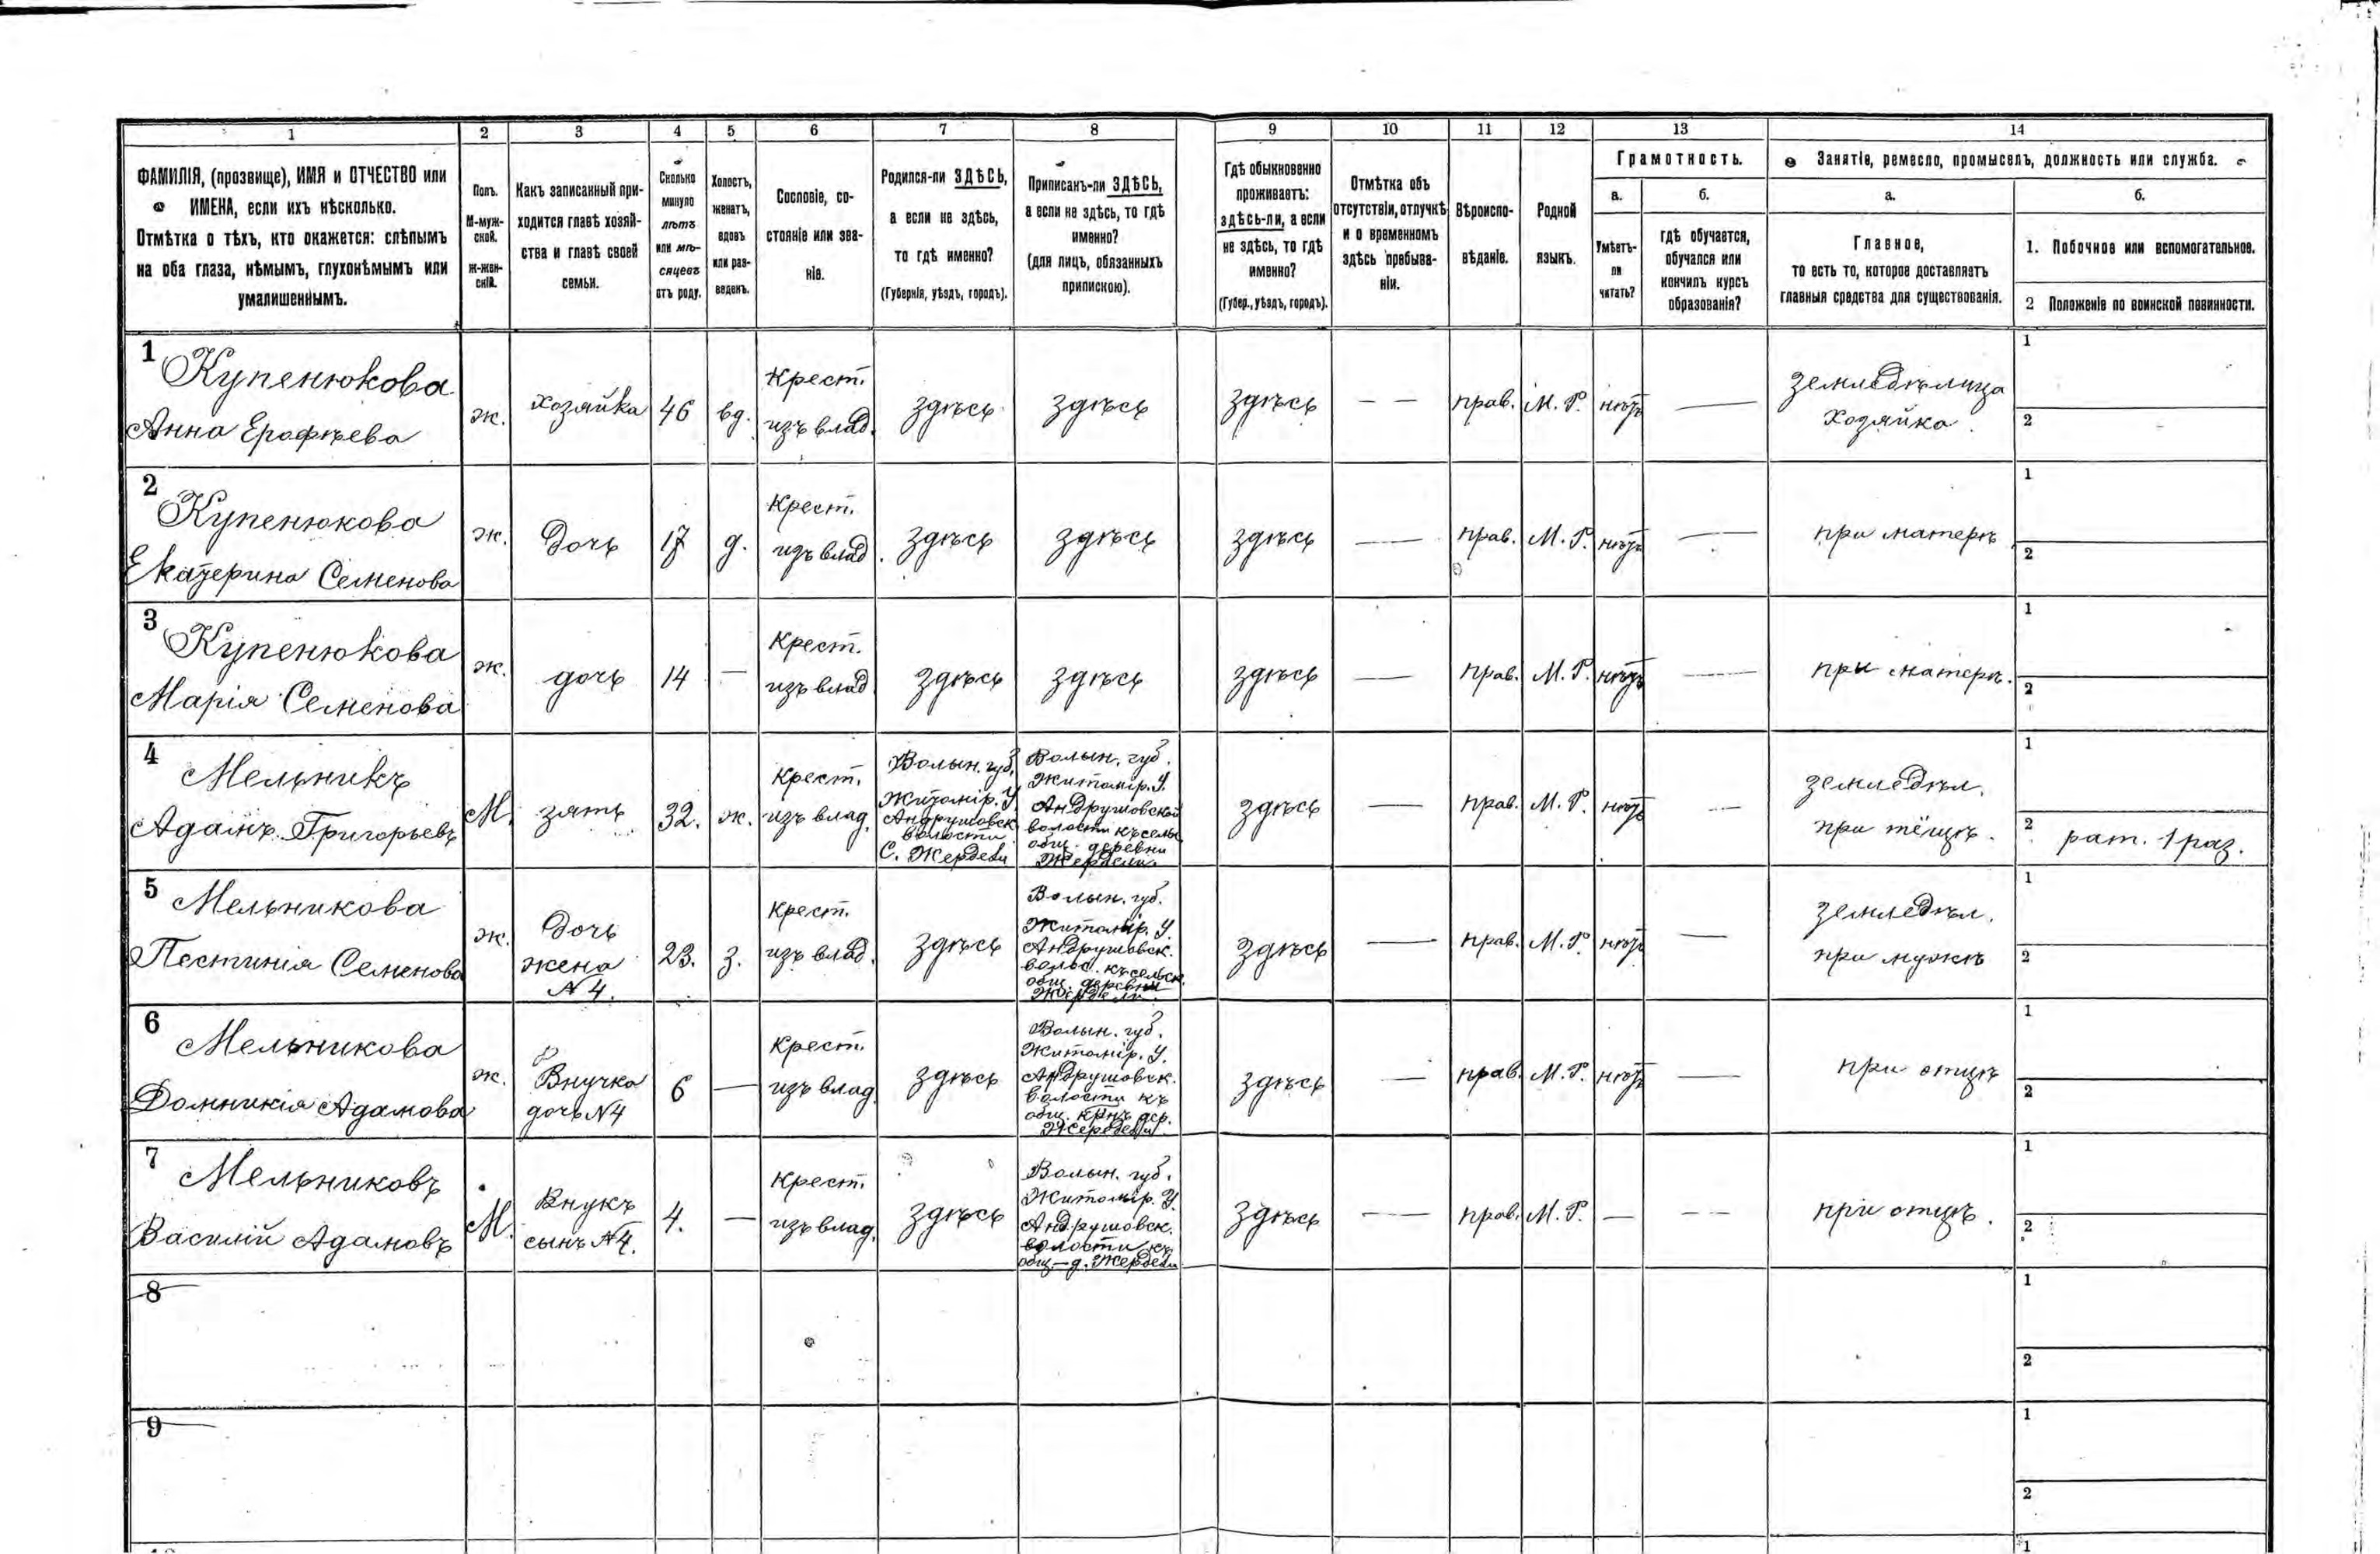 1 2 3 4 5 6 7 8 9 10 11 12 13 14
ФАМИЛІЯ, (прозвище), ИМЯ и ОТЧЕСТВО или
ИМЕНА, если ихъ нѣсколько.
Отмѣтка о тѣхъ, кто окажется: слѣпымъ
на оба глаза, нѣмымъ, глухонѣмымъ или
умалишеннымъ.
Полъ.
М-муж-
ской.
ж-жен-
скій.
Какъ записанный при-
ходится главѣ хозяй-
ства и главѣ своей
семьи.
Сколько
минуло
лѣтъ
или мѣ-
сяцевъ
отъ роду.
Холостъ,
женатъ,
вдовъ
или раз-
веденъ.
Сословіе, со-
стояніе или зва-
ніе.
Родился-ли ЗДѢСЬ,
а если не здѣсь,
то гдѣ именно?
(Губернія, уѣздъ, городъ).
Приписанъ-ли ЗДѢСЬ,
а если не здѣсь, то гдѣ
именно?
(для лицъ, обязанныхъ
припискою).
Гдѣ обыкновенно
проживаетъ:
здѣсь-ли, а если
не здѣсь, то гдѣ
именно?
(Губер., уѣздъ, городъ).
Отмѣтка объ
отсутствіи, отлучкѣ
и о временномъ
здѣсь пребыва-
ніи.
Вѣроиспо-
вѣданіе.
Родной
языкъ.
Грамотность.
а.
Умѣетъ-
ли
читать?
б.
гдѣ обучается,
обучался или
кончилъ курсъ
образованія?
Занятіе, ремесло, промыселъ, должность или служба.
а.
Главное,
то есть то, которое доставляетъ
главныя средства для существованія.
б.
1. Побочное или вспомогательное.
2 Положеніе по воинской повинности.
1
Купенюкова
Анна Ерофѣева
ж.
хозяйка
46
вд.
Крест.
изъ влад.
здѣсь
здѣсь
здѣсь
— —
прав.
М. Р.
нѣтъ
—
земледѣлица
хозяйка.
1
2
2
Купенюкова
Екатерина Семенова
ж.
Дочь
17
д.
Крест.
изъ влад.
здѣсь
здѣсь
здѣсь
—
прав.
М. Р.
нѣтъ
—
при матерѣ
1
2
3
Купенюкова
Марія Семенова
ж.
дочь
14
—
Крест.
изъ влад
здѣсь
здѣсь
здѣсь
—
прав.
М. Р.
нѣтъ
—
при матерѣ.
1
2
4
Мельникъ
Адамъ Григорьевъ
М.
зять
32.
ж.
Крест.
изъ влад.
Волын. губ.
Житомір. У
Андрушовск
волости
С. Жердели
Волын. губ.
Житомір. У.
Андрушовской
волости къ сельс
общ. деревни
Жердели
здѣсь
—
прав.
М. Р.
нѣтъ
—
земледѣл.
при тёщѣ.
1
2 рат. 1 раз.
5
Мельникова
Пестинія Семенова
ж.
Дочь
жена
N 4.
23.
з.
Крест.
изъ влад.
здѣсь
Волын. губ.
Житомір. У.
Андрушовск.
волос. къ сельск.
общ. деревни
Жердели
здѣсь
—
прав.
М. Р
нѣтъ
—
земледѣл.
при мужѣ
1
2
6
Мельникова
Домникія Адамова
ж.
Внучка
дочь N4
6
—
Крест.
изъ влад.
здѣсь
Волын. губ.
Житомір. У.
Андрушовск.
волости къ
общ. дер.
Жердели
здѣсь
—
прав.
М. Р.
нѣтъ
—
при отцѣ
1
2
7
Мельниковъ
Василій Адамовъ
М.
Внукъ
сынъ N4.
4.
—
Крест.
изъ влад.
здѣсь
Волын. губ.
Житомір. У.
Андрушовск.
волости къ
общ.—д. Жердели
здѣсь
—
прав.
М. Р.
—
— —
при отцѣ.
1
2
8
1
2
9
1
2
1